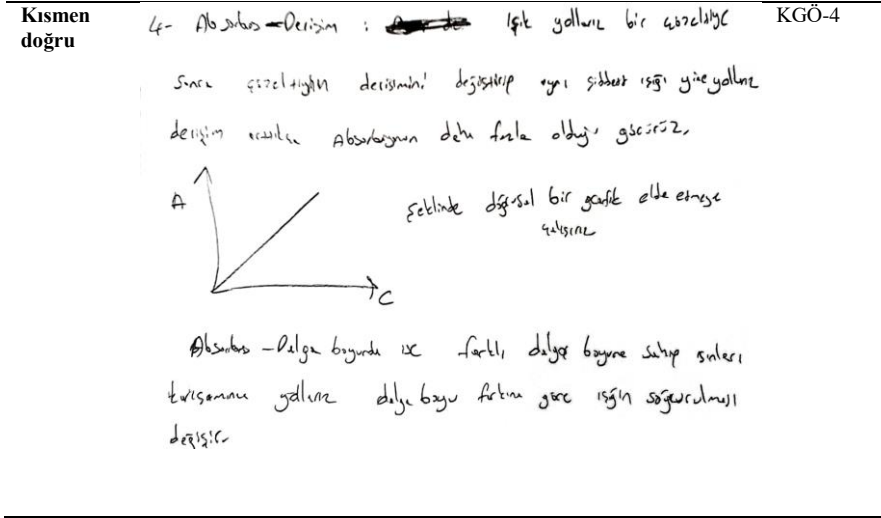 Kısmen doğru
KGÖ-4
4- Absorbans - Derişim : Işık yollarız bir çözeltiye
sonra çözeltiğin derişimini değiştirip aynı şiddette ışığı yine yollarız
derişim arttıkça Absorbansın daha fazla olduğu görürüz.
A
C
Şeklinde doğrusal bir grafik elde etmeye
çalışırız
Absorbans - Dalga boyunda ise farklı dalga boyuna sahip ışınları
yollarız dalga boyu farkına göre ışığın soğurulması
değişir.